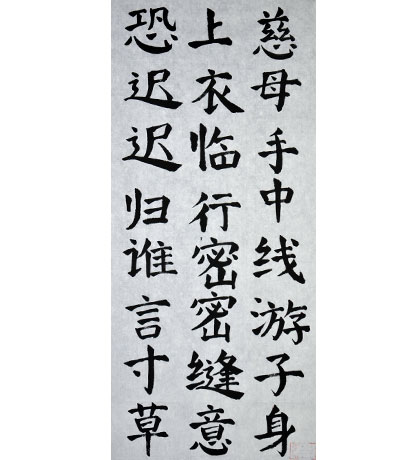 慈母手中线游子身
上衣临行密密缝意
恐迟迟归谁言寸草